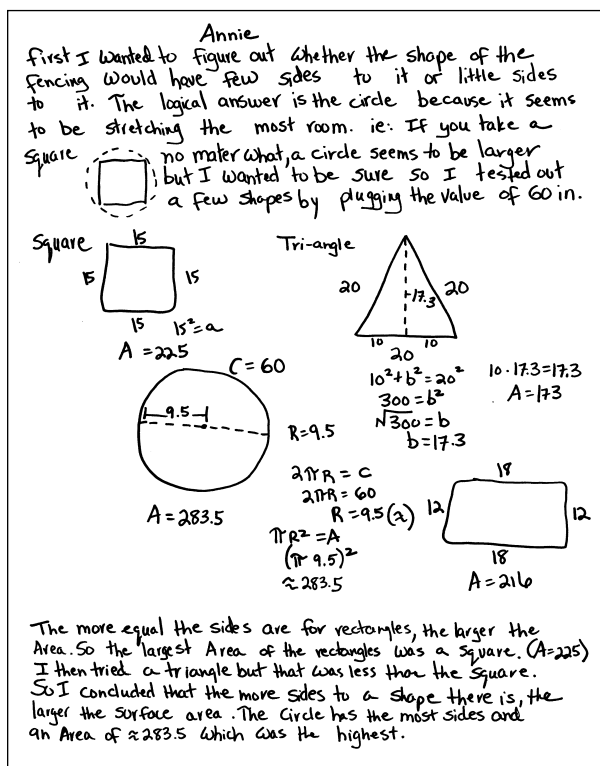 Annie
first I wanted to figure out whether the shape of the
fencing would have few sides to it or little sides
to it. The logical answer is the circle because it seems
to be stretching the most room. ie: If you take a
square no mater what, a circle seems to be larger
but I wanted to be sure so I tested out
a few shapes by plugging the value of 60 in.
Square
15
15
15
15
15² = a
A = 225
Tri-angle
20
17.3
20
10
10
20
10² + b² = 20²
300 = b²
√300 = b
b = 17.3
10 · 17.3 = 17.3
A = 173
C = 60
9.5
R = 9.5
A = 283.5
2πR = C
2πR = 60
R = 9.5 (≈)
πR² = A
(π 9.5)²
≈ 283.5
18
12
12
18
A = 216
The more equal the sides are for rectangles, the larger the
Area. So the largest Area of the rectangles was a square. (A=225)
I then tried a triangle but that was less than the square.
So I concluded that the more sides to a shape there is, the
larger the surface area. The Circle has the most sides and
an Area of ≈ 283.5 which was the highest.